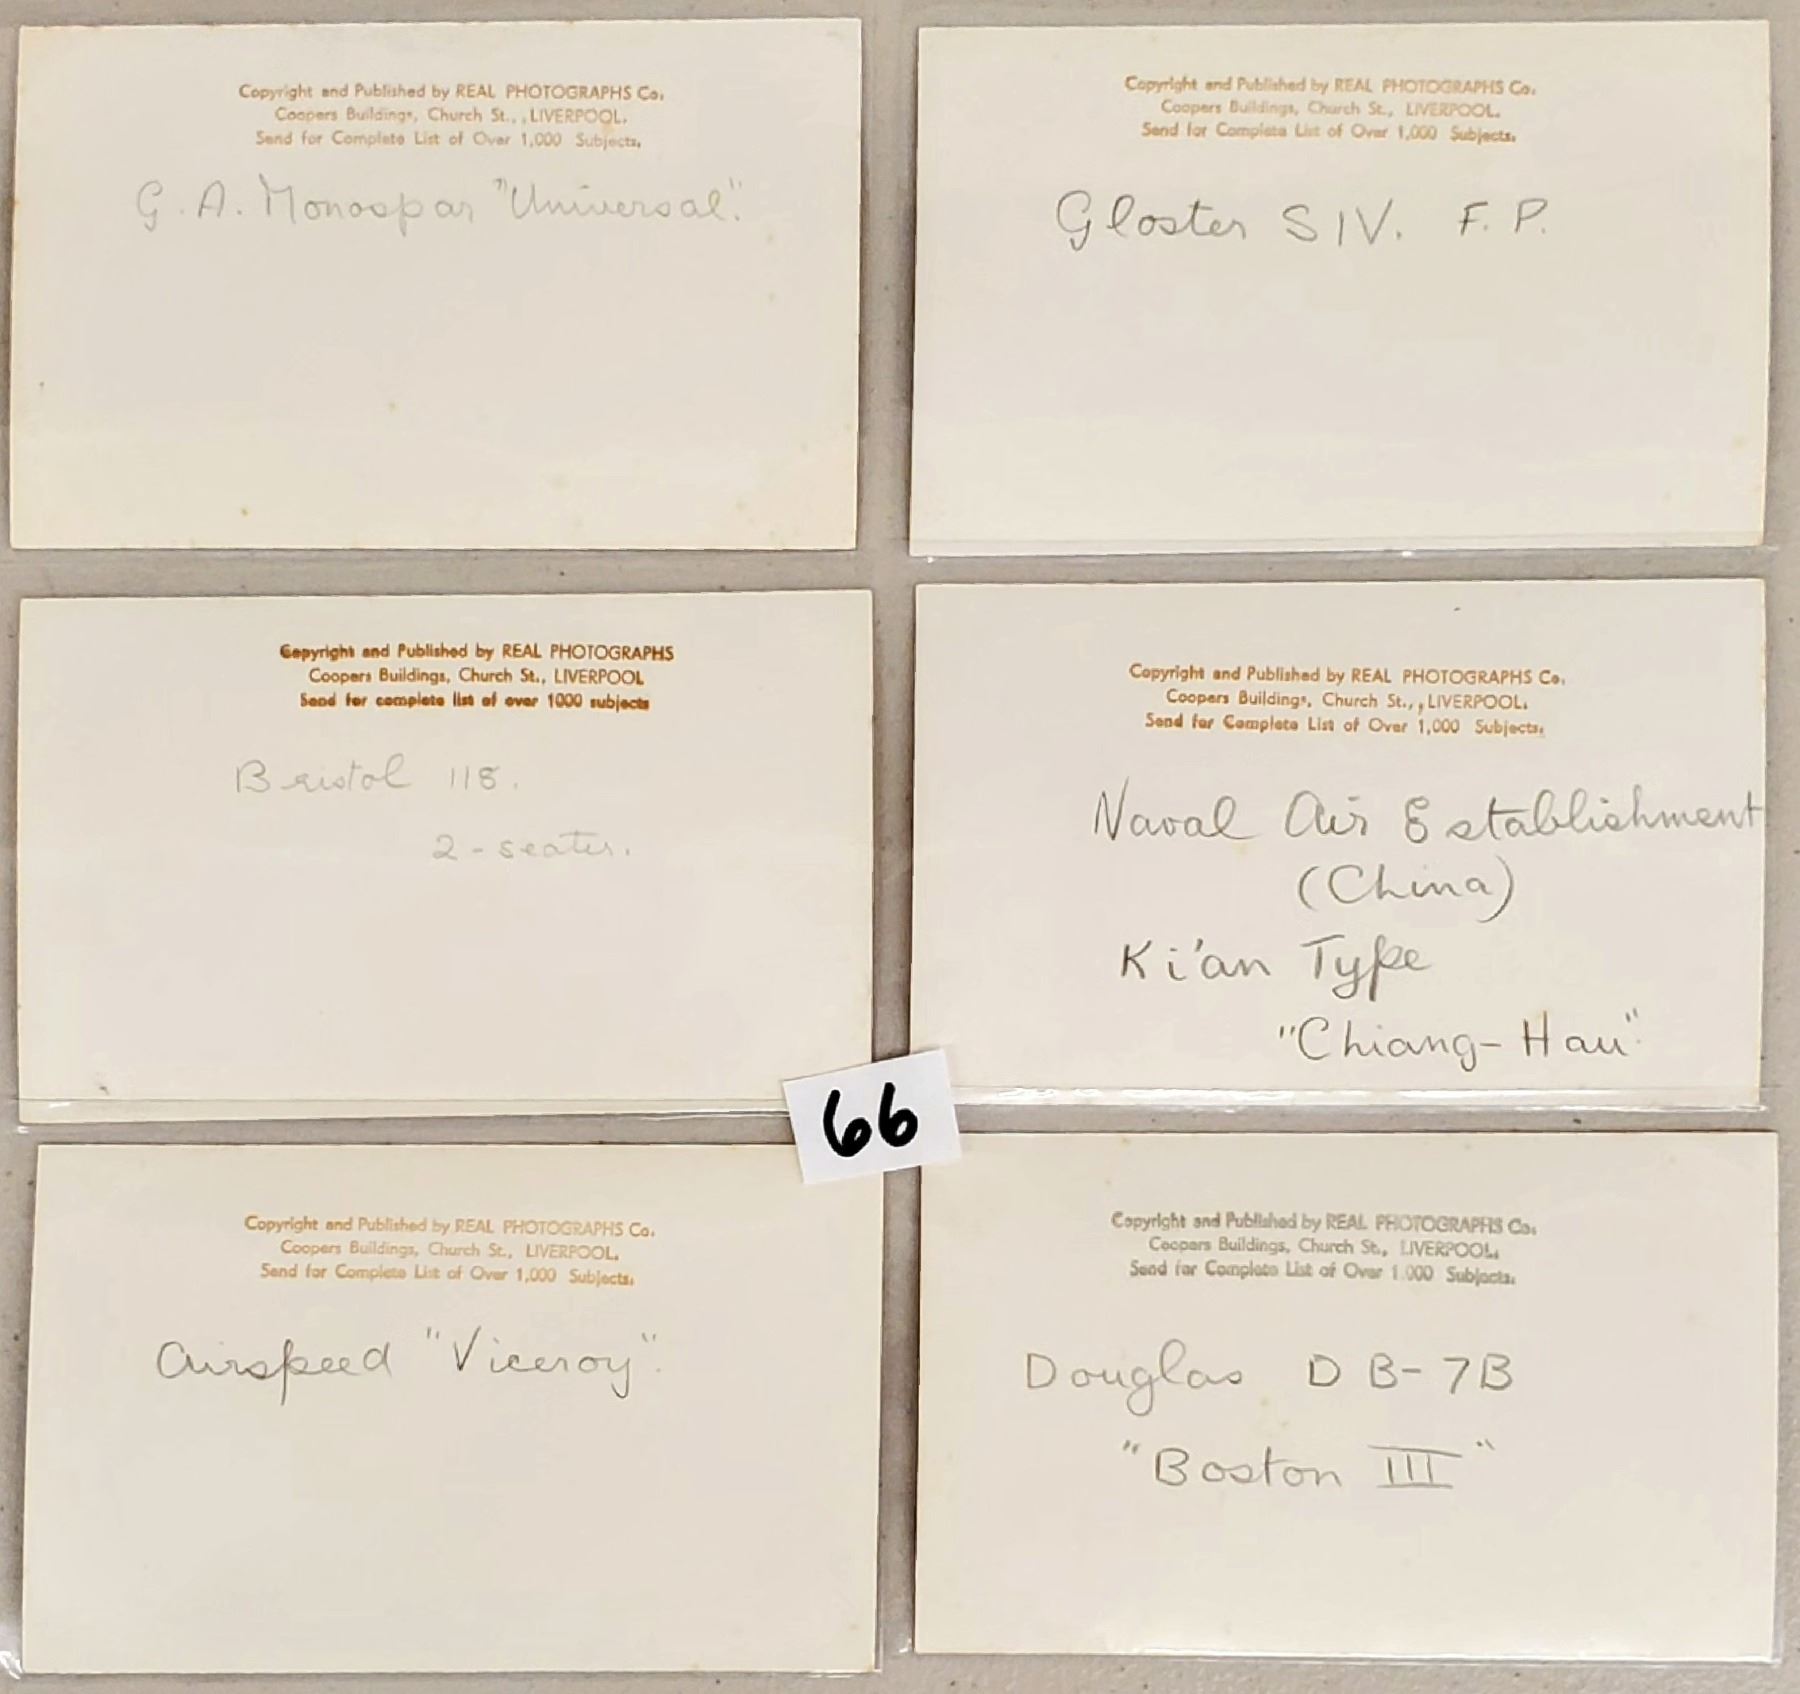 Copyright and Published by REAL PHOTOGRAPHS Co.
Coopers Buildings, Church St., , LIVERPOOL.
Send for Complete List of Over 1,000 Subjects.
G. A. Monospar "Universal".
Copyright and Published by REAL PHOTOGRAPHS Co.
Coopers Buildings, Church St., LIVERPOOL.
Send for Complete List of Over 1,000 Subjects.
Gloster S IV. F. P.
Copyright and Published by REAL PHOTOGRAPHS
Coopers Buildings, Church St., LIVERPOOL
Send for complete list of over 1000 subjects
Bristol 118.
2-seater.
Copyright and Published by REAL PHOTOGRAPHS Co.
Coopers Buildings, Church St., , LIVERPOOL.
Send for Complete List of Over 1,000 Subjects.
Naval Air Establishment
(China)
Ki'an Type
"Chiang-Hau".
66
Copyright and Published by REAL PHOTOGRAPHS Co.
Coopers Buildings, Church St., LIVERPOOL.
Send for Complete List of Over 1,000 Subjects.
Airspeed "Viceroy".
Copyright and Published by REAL PHOTOGRAPHS Co.
Coopers Buildings, Church St., LIVERPOOL.
Send for Complete List of Over 1,000 Subjects.
Douglas DB-7B
"Boston III"